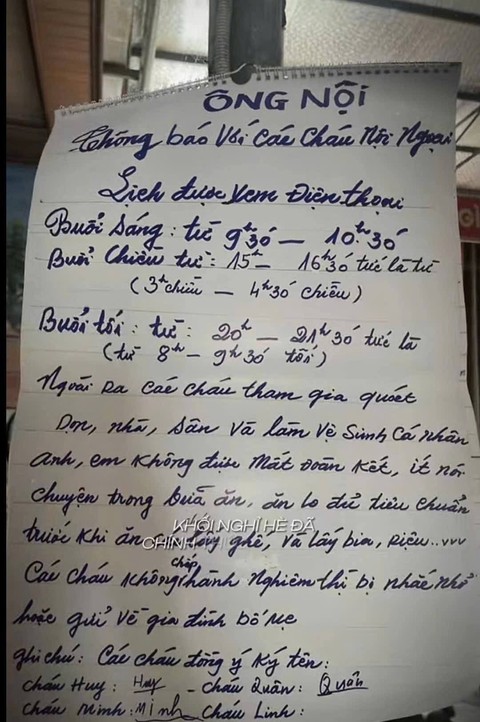 ÔNG NỘI
Thông báo với các cháu Nội Ngoại
Lịch được xem Điện thoại
Buổi sáng: từ 9h30 – 10h30
Buổi chiều từ: 15h – 16h30 tức là từ
(3h chiều – 4h30 chiều)
Buổi tối: từ: 20h – 21h30 tức là
(từ 8h – 9h30 tối)
Ngoài ra các cháu tham gia quét
dọn, nhà, sân và làm vệ sinh cá nhân
Anh, em không được mất đoàn kết, ít nói
chuyện trong bữa ăn, ăn lo đủ tiêu chuẩn
trước khi ăn lấy ghế, và lấy bia, rượu..vvv
KHỞI NGHỈ HÈ ĐÃ
CHÍNH
Các cháu không chấp hành nghiêm thì bị nhắc nhở
hoặc gửi về gia đình bố mẹ
ghi chú: Các cháu đồng ý ký tên:
cháu Huy: Huy – cháu Quân: Quân
cháu Minh: Minh cháu Linh: